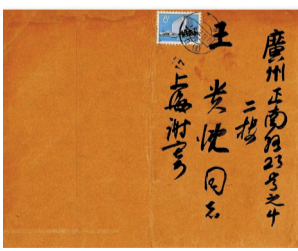 廣州正南路23号之十
二楼
王贵忱同志
上海谢寄